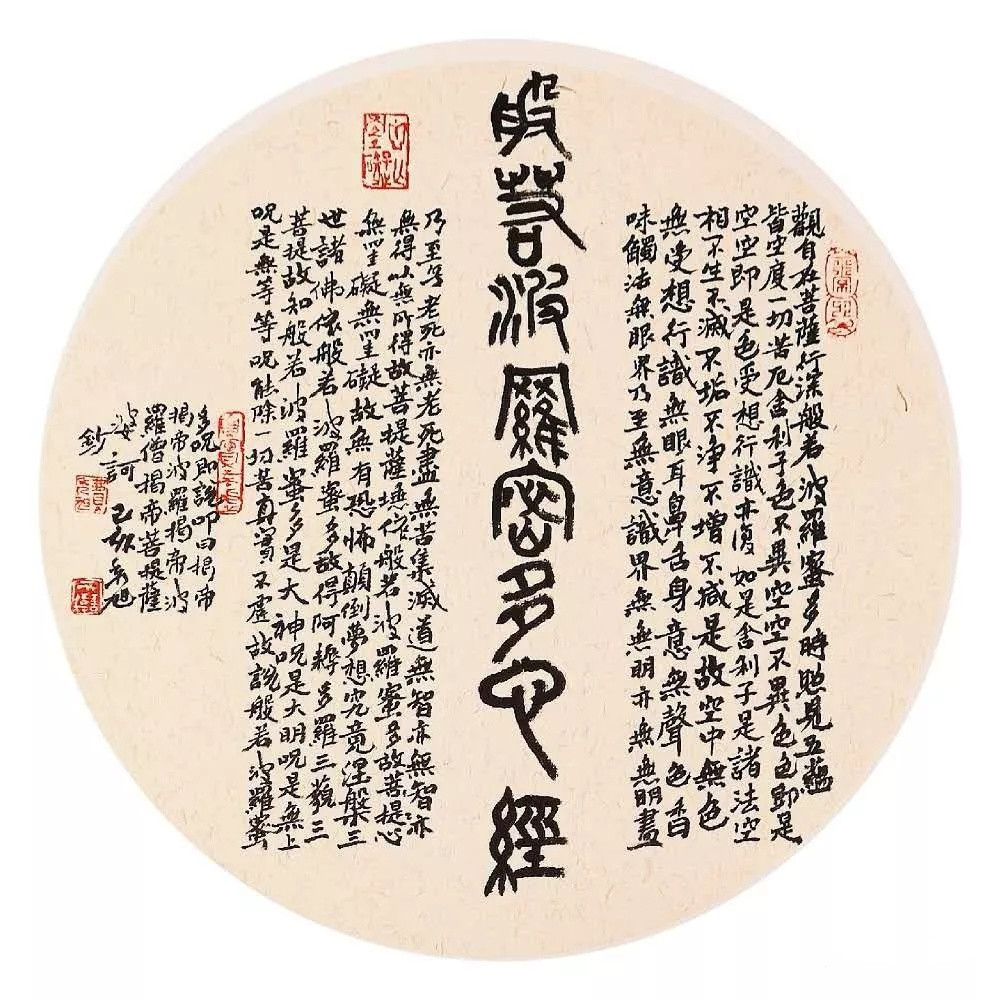 觀自在菩薩行深般若波羅蜜多時照見五蘊
皆空度一切苦厄舍利子色不異空空不異色色即是
空空即是色受想行識亦復如是舍利子是諸法空
相不生不滅不垢不淨不增不減是故空中無色
無受想行識無眼耳鼻舌身意無聲色香
味觸法無眼界乃至無意識界無無明亦無無明盡
般若波羅密多心經
乃至無老死亦無老死盡無苦集滅道無智亦無智亦
無得以無所得故菩提薩埵依般若波羅蜜多故菩提心
無罣礙無罣礙故無有恐怖顛倒夢想究竟涅槃三
世諸佛依般若波羅蜜多故得阿耨多羅三藐三
菩提故知般若波羅蜜多是大神咒是大明咒是無上
咒是無等等咒能除一切苦真實不虛故說般若波羅蜜
多咒即說咒曰揭帝
揭帝波羅揭帝波
羅僧揭帝菩提薩
婆訶 己亥旭
鈔